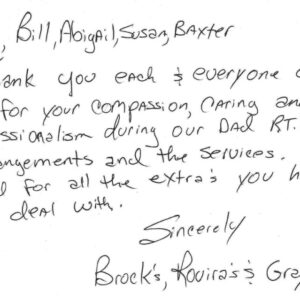 , Bill, Abigail, Susan, Baxter
ank you each & everyone o
for your compassion, caring and
ssionalism during our Dad RT.
ngements and the services.
for all the extra's you h
deal with.
Sincerely
Brock's, Rovira's & Gra